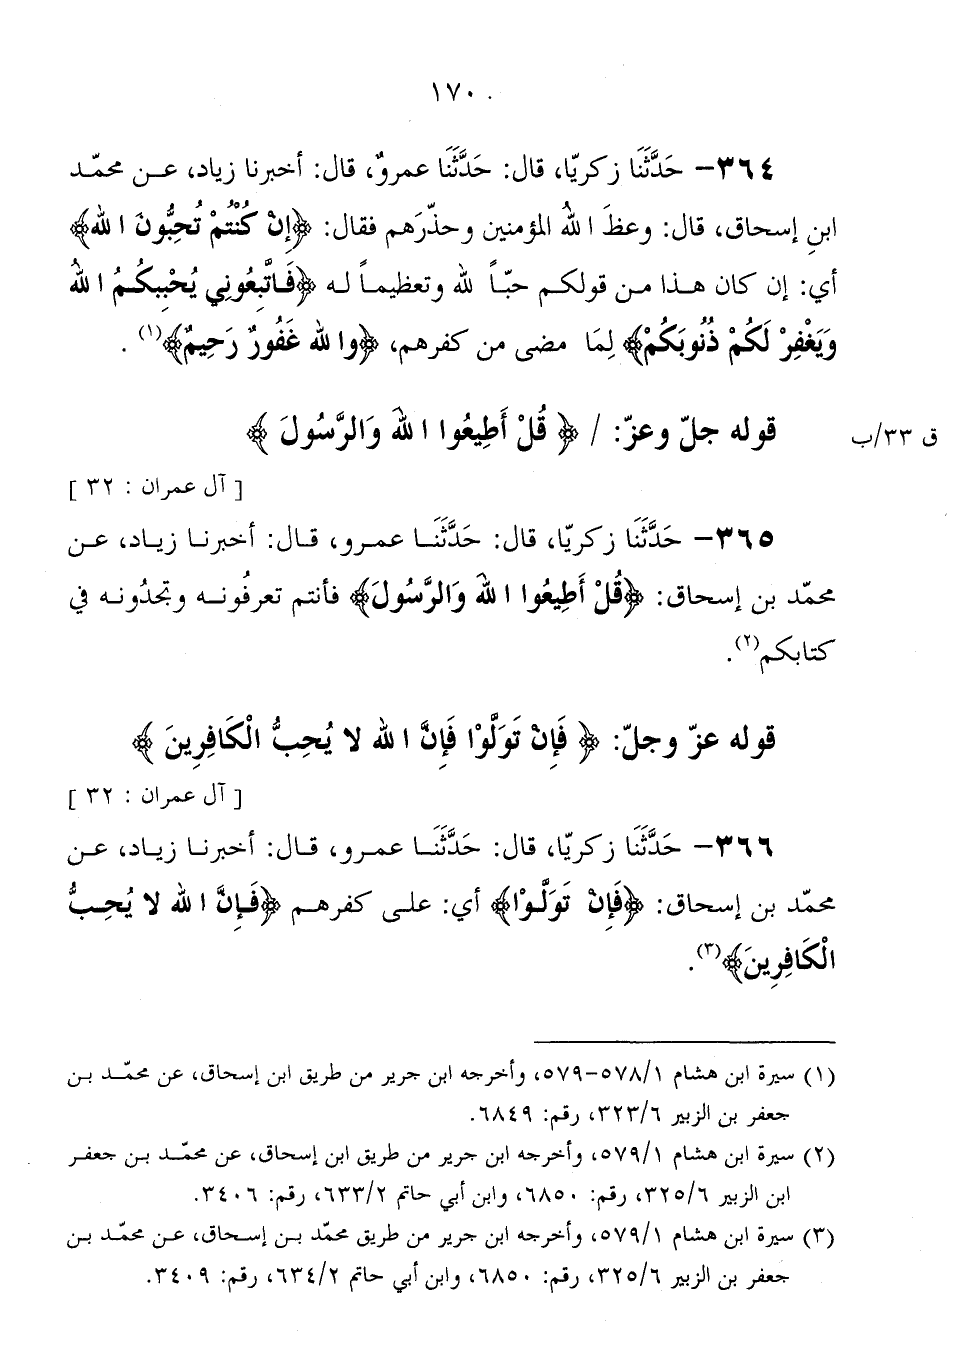 ١٧٠
٣٦٤- حَدَّثَنَا زكريّا، قال: حَدَّثَنَا عمروٌ، قال: أخبرنا زياد، عن محمّد
ابنِ إسحاق، قال: وعظَ اللهُ المؤمنين وحذّرَهم فقال: ﴿إِنْ كُنْتُمْ تُحِبُّونَ اللهَ﴾
أي: إن كان هذا من قولكم حبّاً لله وتعظيماً له ﴿فَاتَّبِعُونِي يُحْبِبكُمُ اللهُ
وَيَغْفِرْ لَكُمْ ذُنُوبَكُمْ﴾ لِمَا مضى من كفرهم، ﴿والله غَفُورٌ رَحِيمٌ﴾(١).
قوله جلّ وعزّ: / ﴿ قُلْ أَطِيعُوا اللهَ وَالرَّسُولَ ﴾
ق ٣٣/ب
[ آل عمران : ٣٢ ]
٣٦٥- حَدَّثَنَا زكريّا، قال: حَدَّثَنَا عمرو، قال: أخبرنا زياد، عن
محمّد بن إسحاق: ﴿قُلْ أَطِيعُوا اللهَ وَالرَّسُولَ﴾ فأنتم تعرفُونه وتجدُونه في
كتابكم(٢).
قوله عزّ وجلّ: ﴿ فَإِنْ تَوَلَّوْا فَإِنَّ الله لا يُحِبُّ الْكَافِرِينَ ﴾
[ آل عمران : ٣٢ ]
٣٦٦- حَدَّثَنَا زكريّا، قال: حَدَّثَنَا عمرو، قال: أخبرنا زياد، عن
محمّد بن إسحاق: ﴿فَإِنْ تَوَلَّوْا﴾ أي: على كفرهم ﴿فَإِنَّ الله لا يُحِبُّ
الْكَافِرِينَ﴾(٣).
(١) سيرة ابن هشام ٥٧٨/١-٥٧٩، وأخرجه ابن جرير من طريق ابن إسحاق، عن محمّد بن
جعفر بن الزبير ٣٢٣/٦، رقم: ٦٨٤٩.
(٢) سيرة ابن هشام ٥٧٩/١، وأخرجه ابن جرير من طريق ابن إسحاق، عن محمّد بن جعفر
ابن الزبير ٣٢٥/٦، رقم: ٦٨٥٠، وابن أبي حاتم ٦٣٣/٢، رقم: ٣٤٠٦.
(٣) سيرة ابن هشام ٥٧٩/١، وأخرجه ابن جرير من طريق محمّد بن إسحاق، عن محمّد بن
جعفر بن الزبير ٣٢٥/٦، رقم: ٦٨٥٠، وابن أبي حاتم ٦٣٤/٢، رقم: ٣٤٠٩.